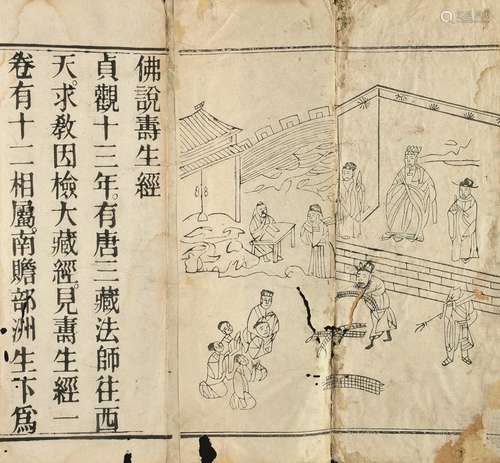 佛說壽生經
貞觀十三年。有唐三藏法師往西
天。求教因檢大藏經。見壽生經一
卷有十二相屬。南贍部洲生下爲